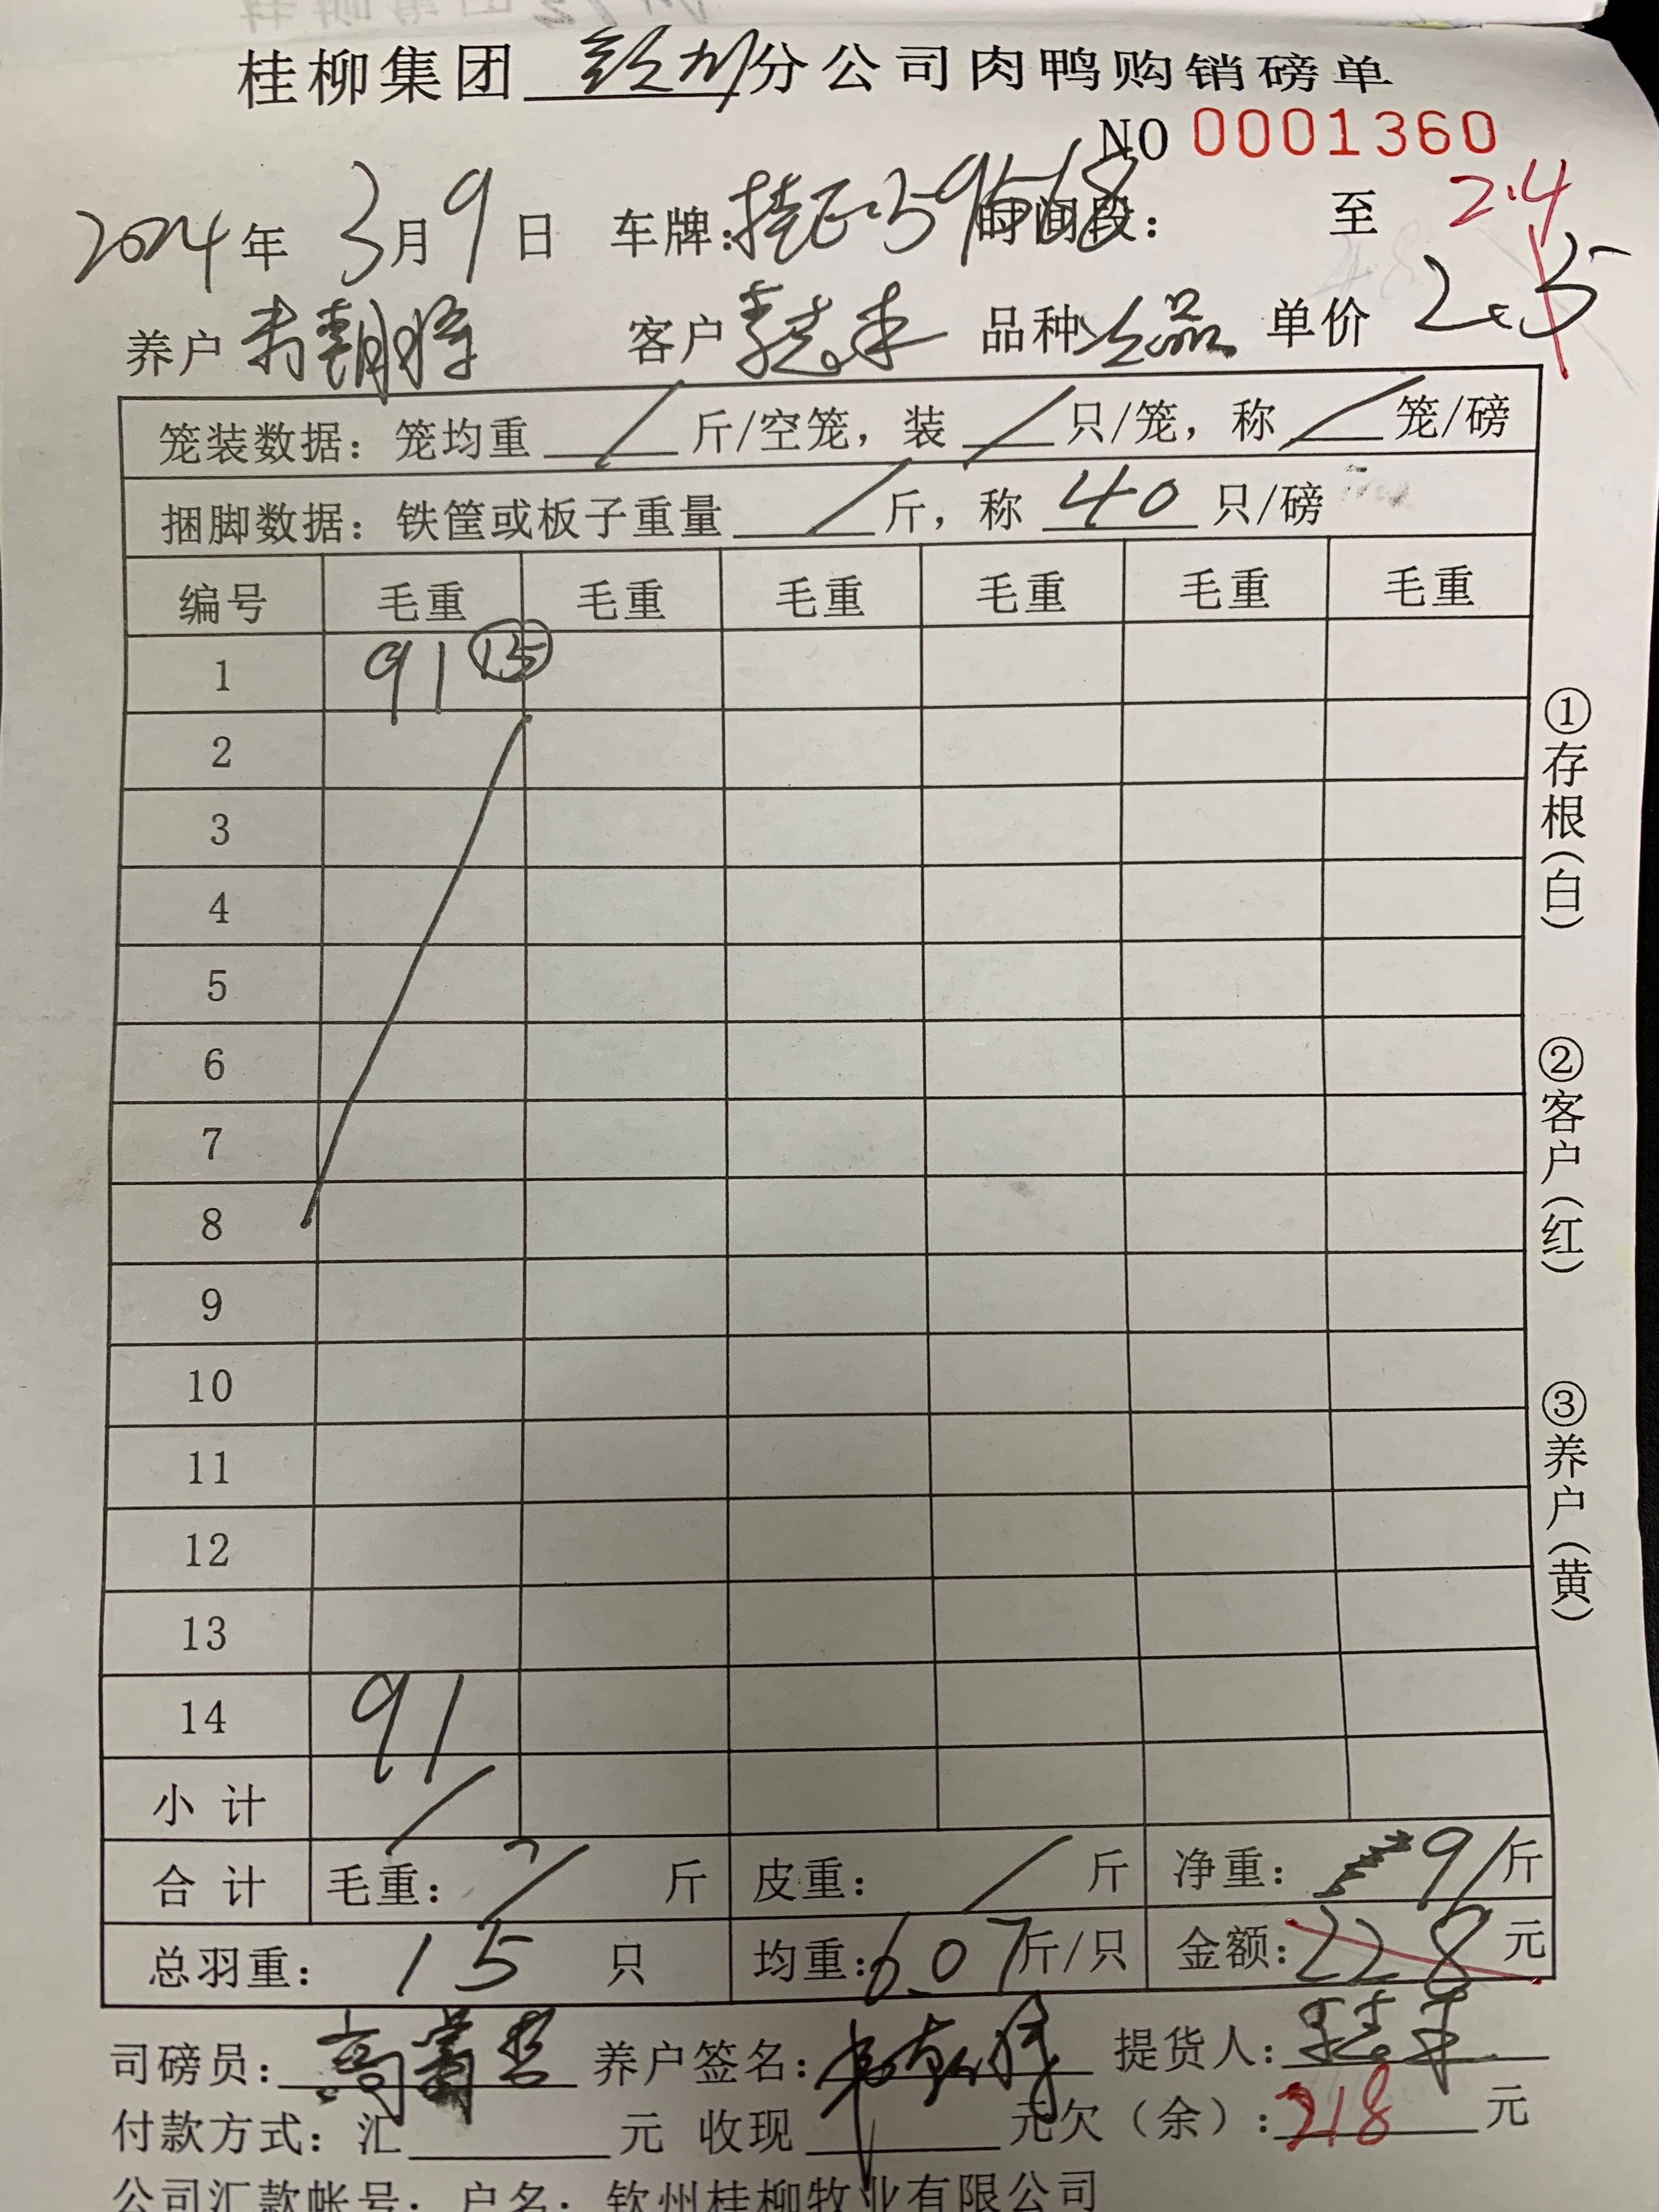 桂柳集团 钦州 分公司肉鸭购销磅单
NO 0001360
2024年 3月9日 车牌: 时间段: 至 2.4
养户 客户 品种 次品 单价 2.5
笼装数据: 笼均重 / 斤/空笼, 装 / 只/笼, 称 / 笼/磅
捆脚数据: 铁筐或板子重量 / 斤, 称 40 只/磅
编号 毛重 毛重 毛重 毛重 毛重 毛重
1 91 15
2
3
4
5
6
7
8
9
10
11
12
13
14 91
小计 /
合计 毛重: / 斤 皮重: / 斤 净重: 91 斤
总羽重: 15 只 均重: 6.07 斤/只 金额: 228 元
司磅员: 养户签名: 提货人:
付款方式: 汇 元 收现 元 欠(余): 218 元
公司汇款帐号: 户名: 钦州桂柳牧业有限公司
①存根(白)
②客户(红)
③养户(黄)